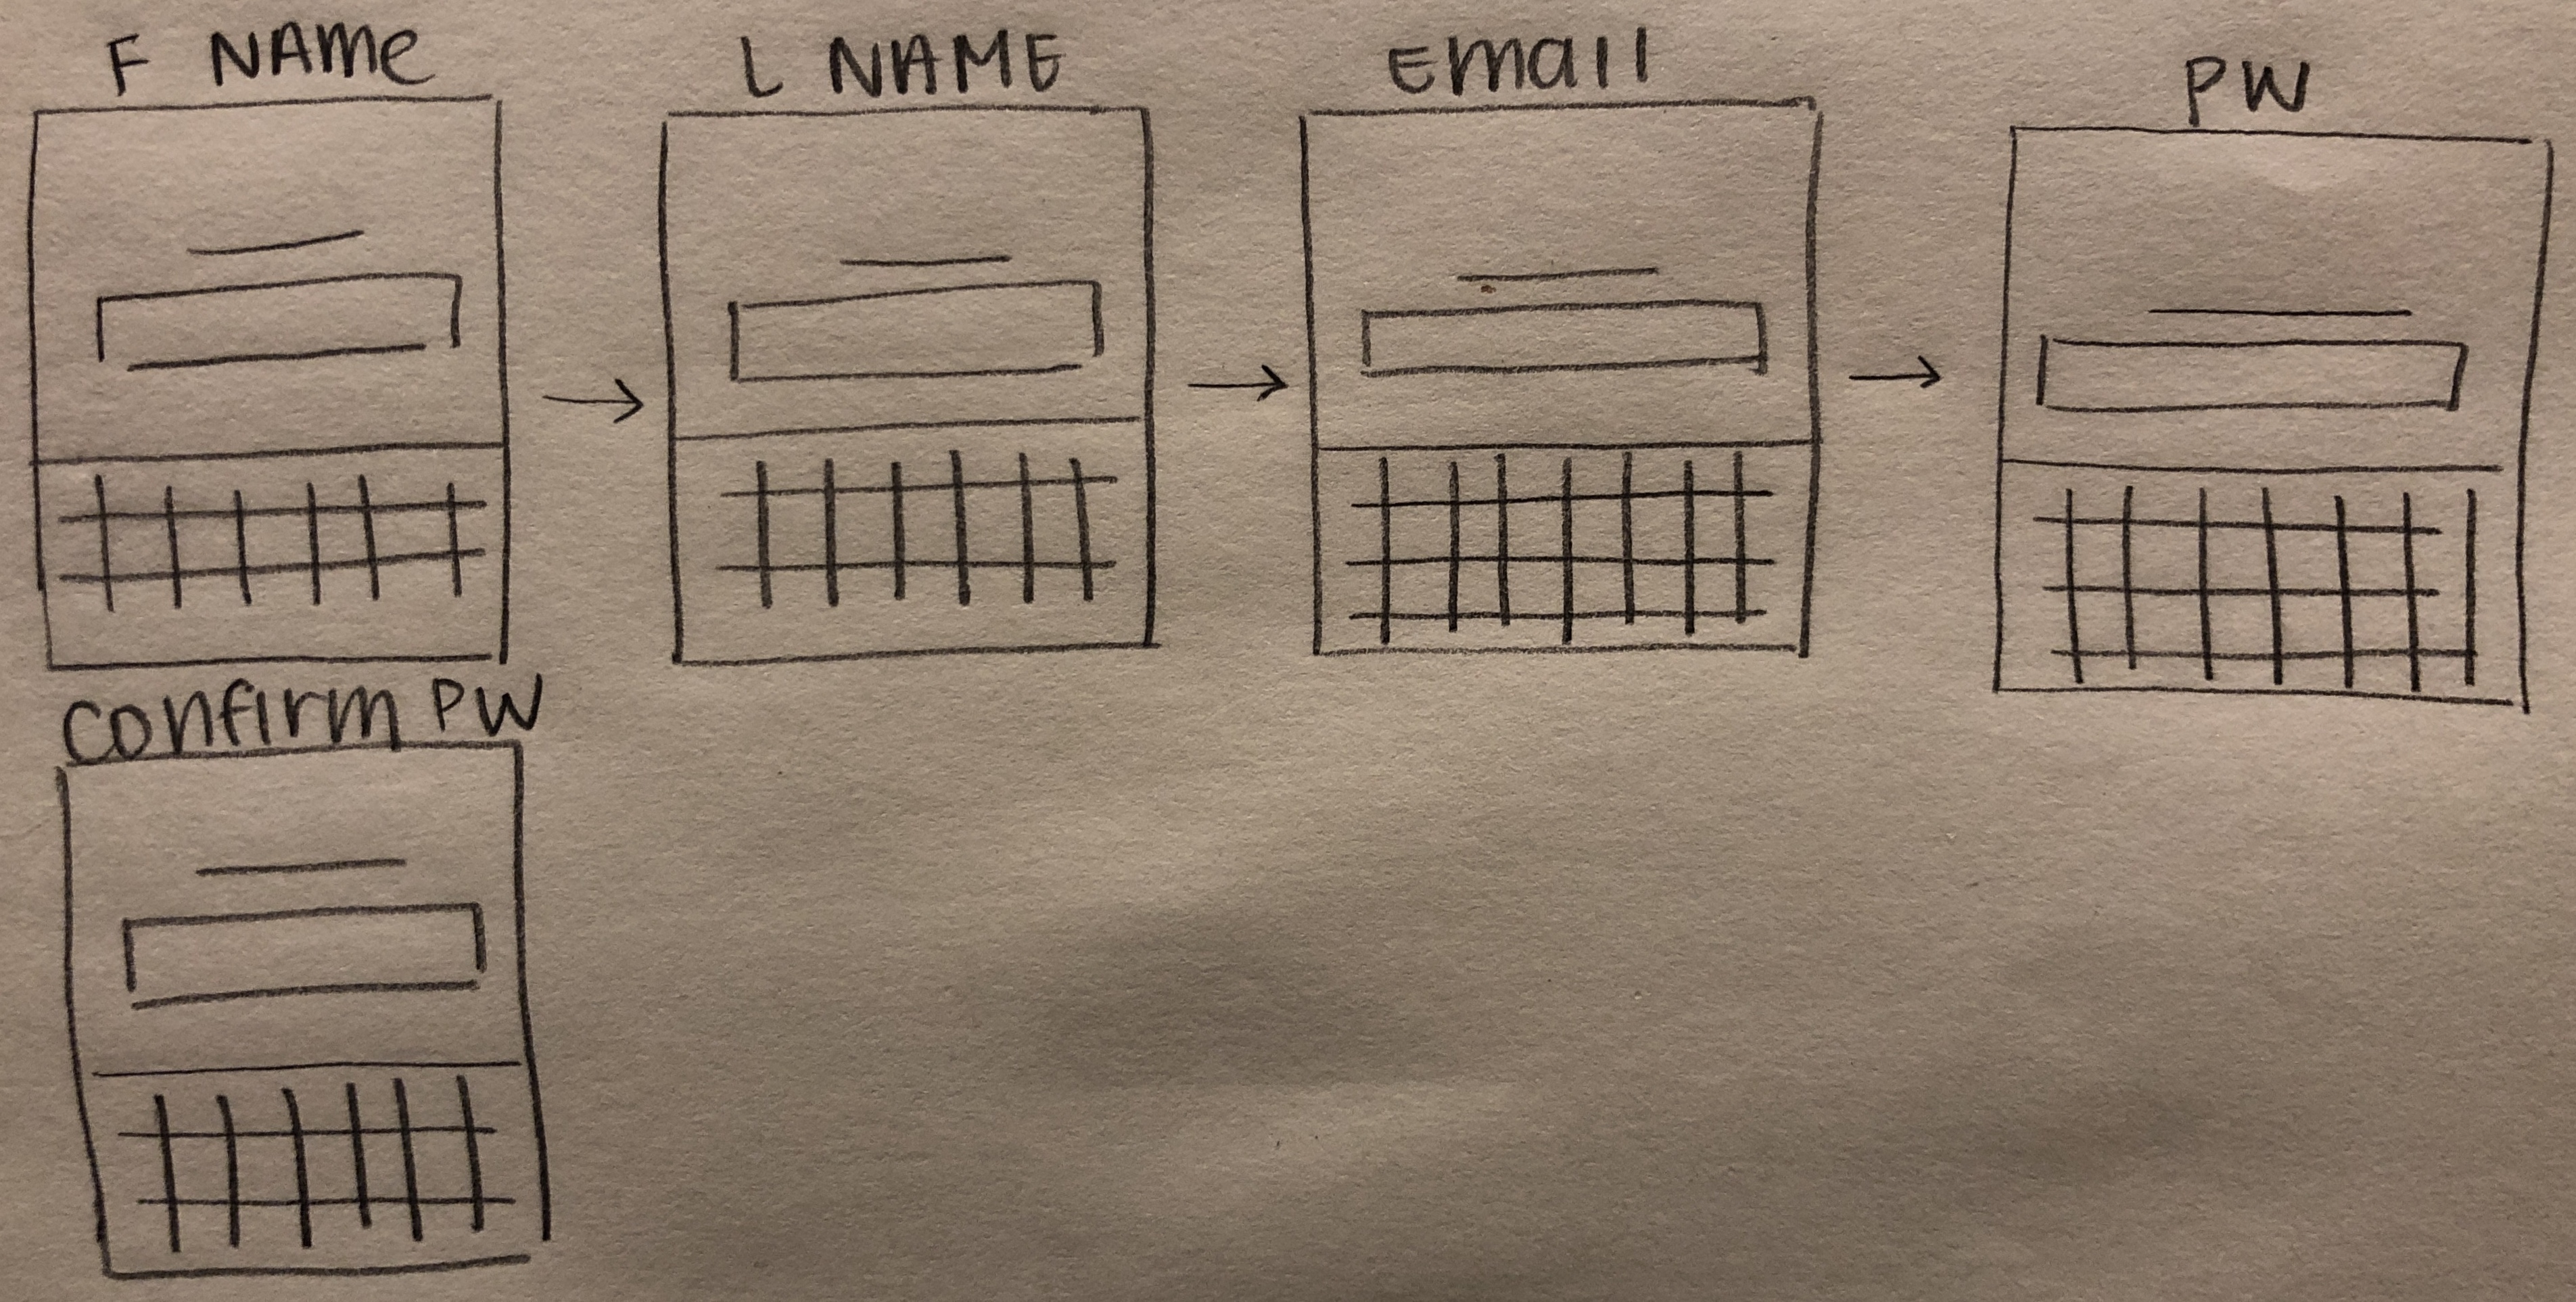 F NAme
L NAME
Email
PW
Confirm PW